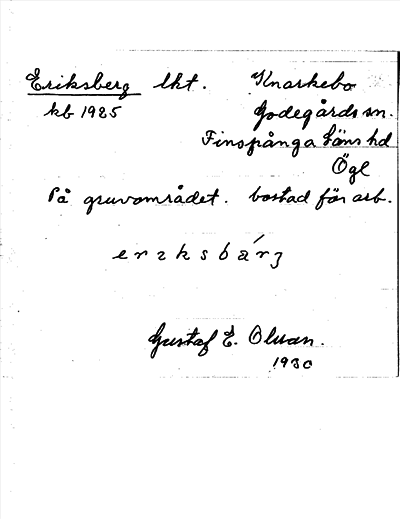 Eriksberg lkt. Knarkebo
kb 1925 Godegårds sn.
Finspånga läns hd
Ögl
På gruvområdet. bostad för arb.
erıksbárj
Gustaf E. Olsson.
1930